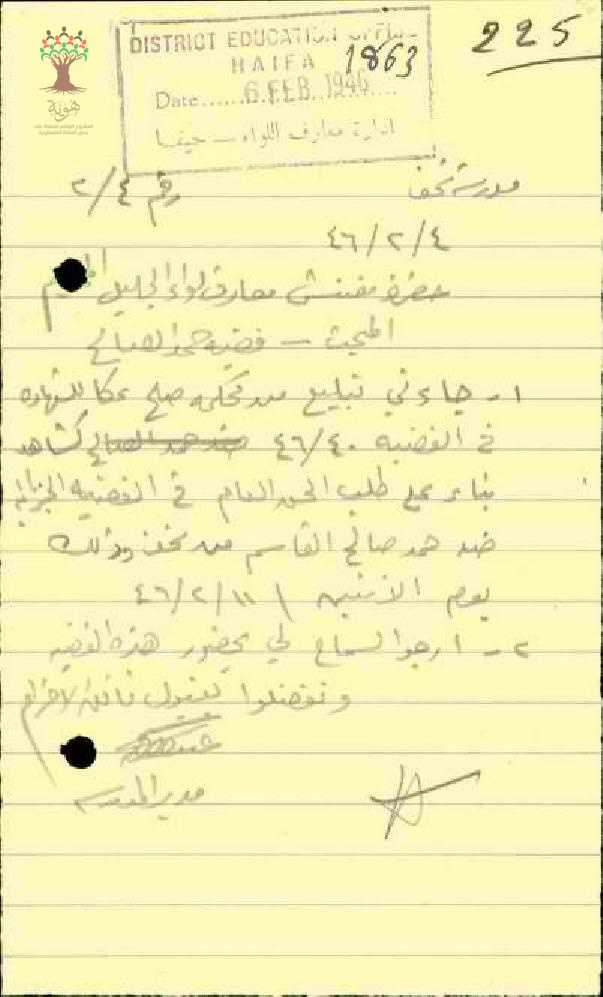 225
DISTRICT EDUCATION OFFICE
HAIFA 1863
Date......6 FEB. 1946......
ادارة معارف اللواء — حيفا
هوية
مدرسة نحف رقم ٢/٤
٤٦/٢/٤
حضرة مفتش معارف لواء الجليل المحترم
المبحث — قضية حمد الصالح
١- جاءني تبليغ من محكمة صلح عكا للشهادة
في القضية ٤٦/٤٠ ضد حمد الصالح كشاهد
بناء على طلب الحق العام في القضية الجزائية
ضد حمد صالح القاسم من نحف وذلك
يوم الاثنين ٤٦/٢/١١
٢- ارجو السماح لي بحضور هذه القضية
وتفضلوا بقبول فائق الاحترام
مدير المدرسة